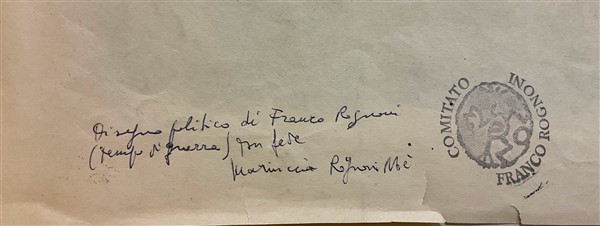 Disegno politico di Franco Rognoni
(tempo di guerra) in fede
Mariuccia Rognoni
COMITATO
FRANCO ROGNONI